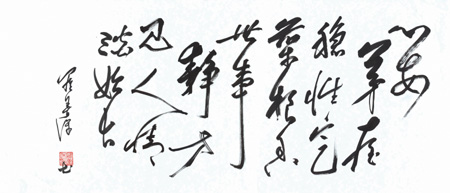 心安
茅屋
稳性定
菜根香
世事
静方
见人情
淡始长